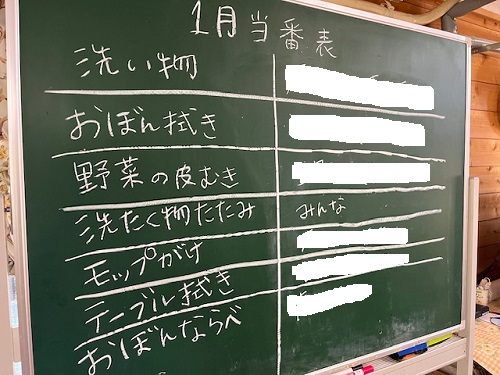 1月当番表
洗い物
おぼん拭き
野菜の皮むき
洗たく物たたみ みんな
モップがけ
テーブル拭き
おぼんならべ